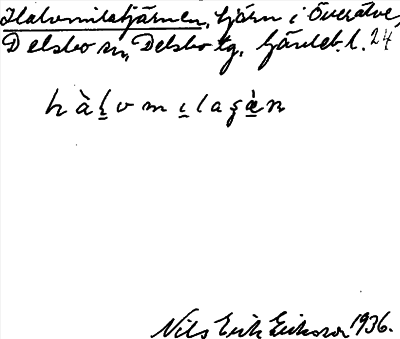 Halvmilstjärnen, tjärn i Överälve,
Delsbo sn, Delsbo tg, Gävleb. l. 24
hàl̠vmi̠lagä̠̀n
Nils Erik Eriksson 1936.